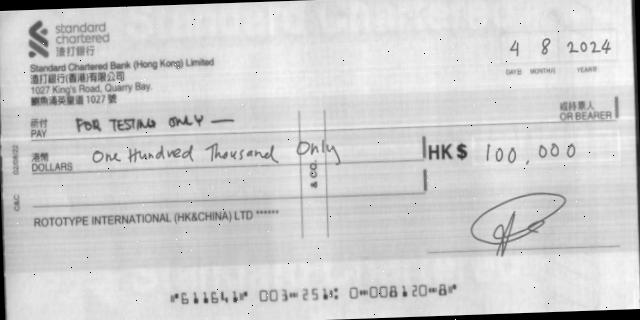 standard
chartered
渣打銀行
Standard Chartered Bank (Hong Kong) Limited
渣打銀行(香港)有限公司
1027 King's Road, Quarry Bay.
鰂魚涌英皇道 1027 號
4 8 2024
DAY日 MONTH月 YEAR年
祈付
PAY
FOR TESTING ONLY —
或持票人
OR BEARER
港幣
DOLLARS
One Hundred Thousand Only
HK$ 100,000
& CO.
ROTOTYPE INTERNATIONAL (HK&CHINA) LTD ******
⑈611641⑈ 003⑉251⑆ 0⑉008120⑉8⑈